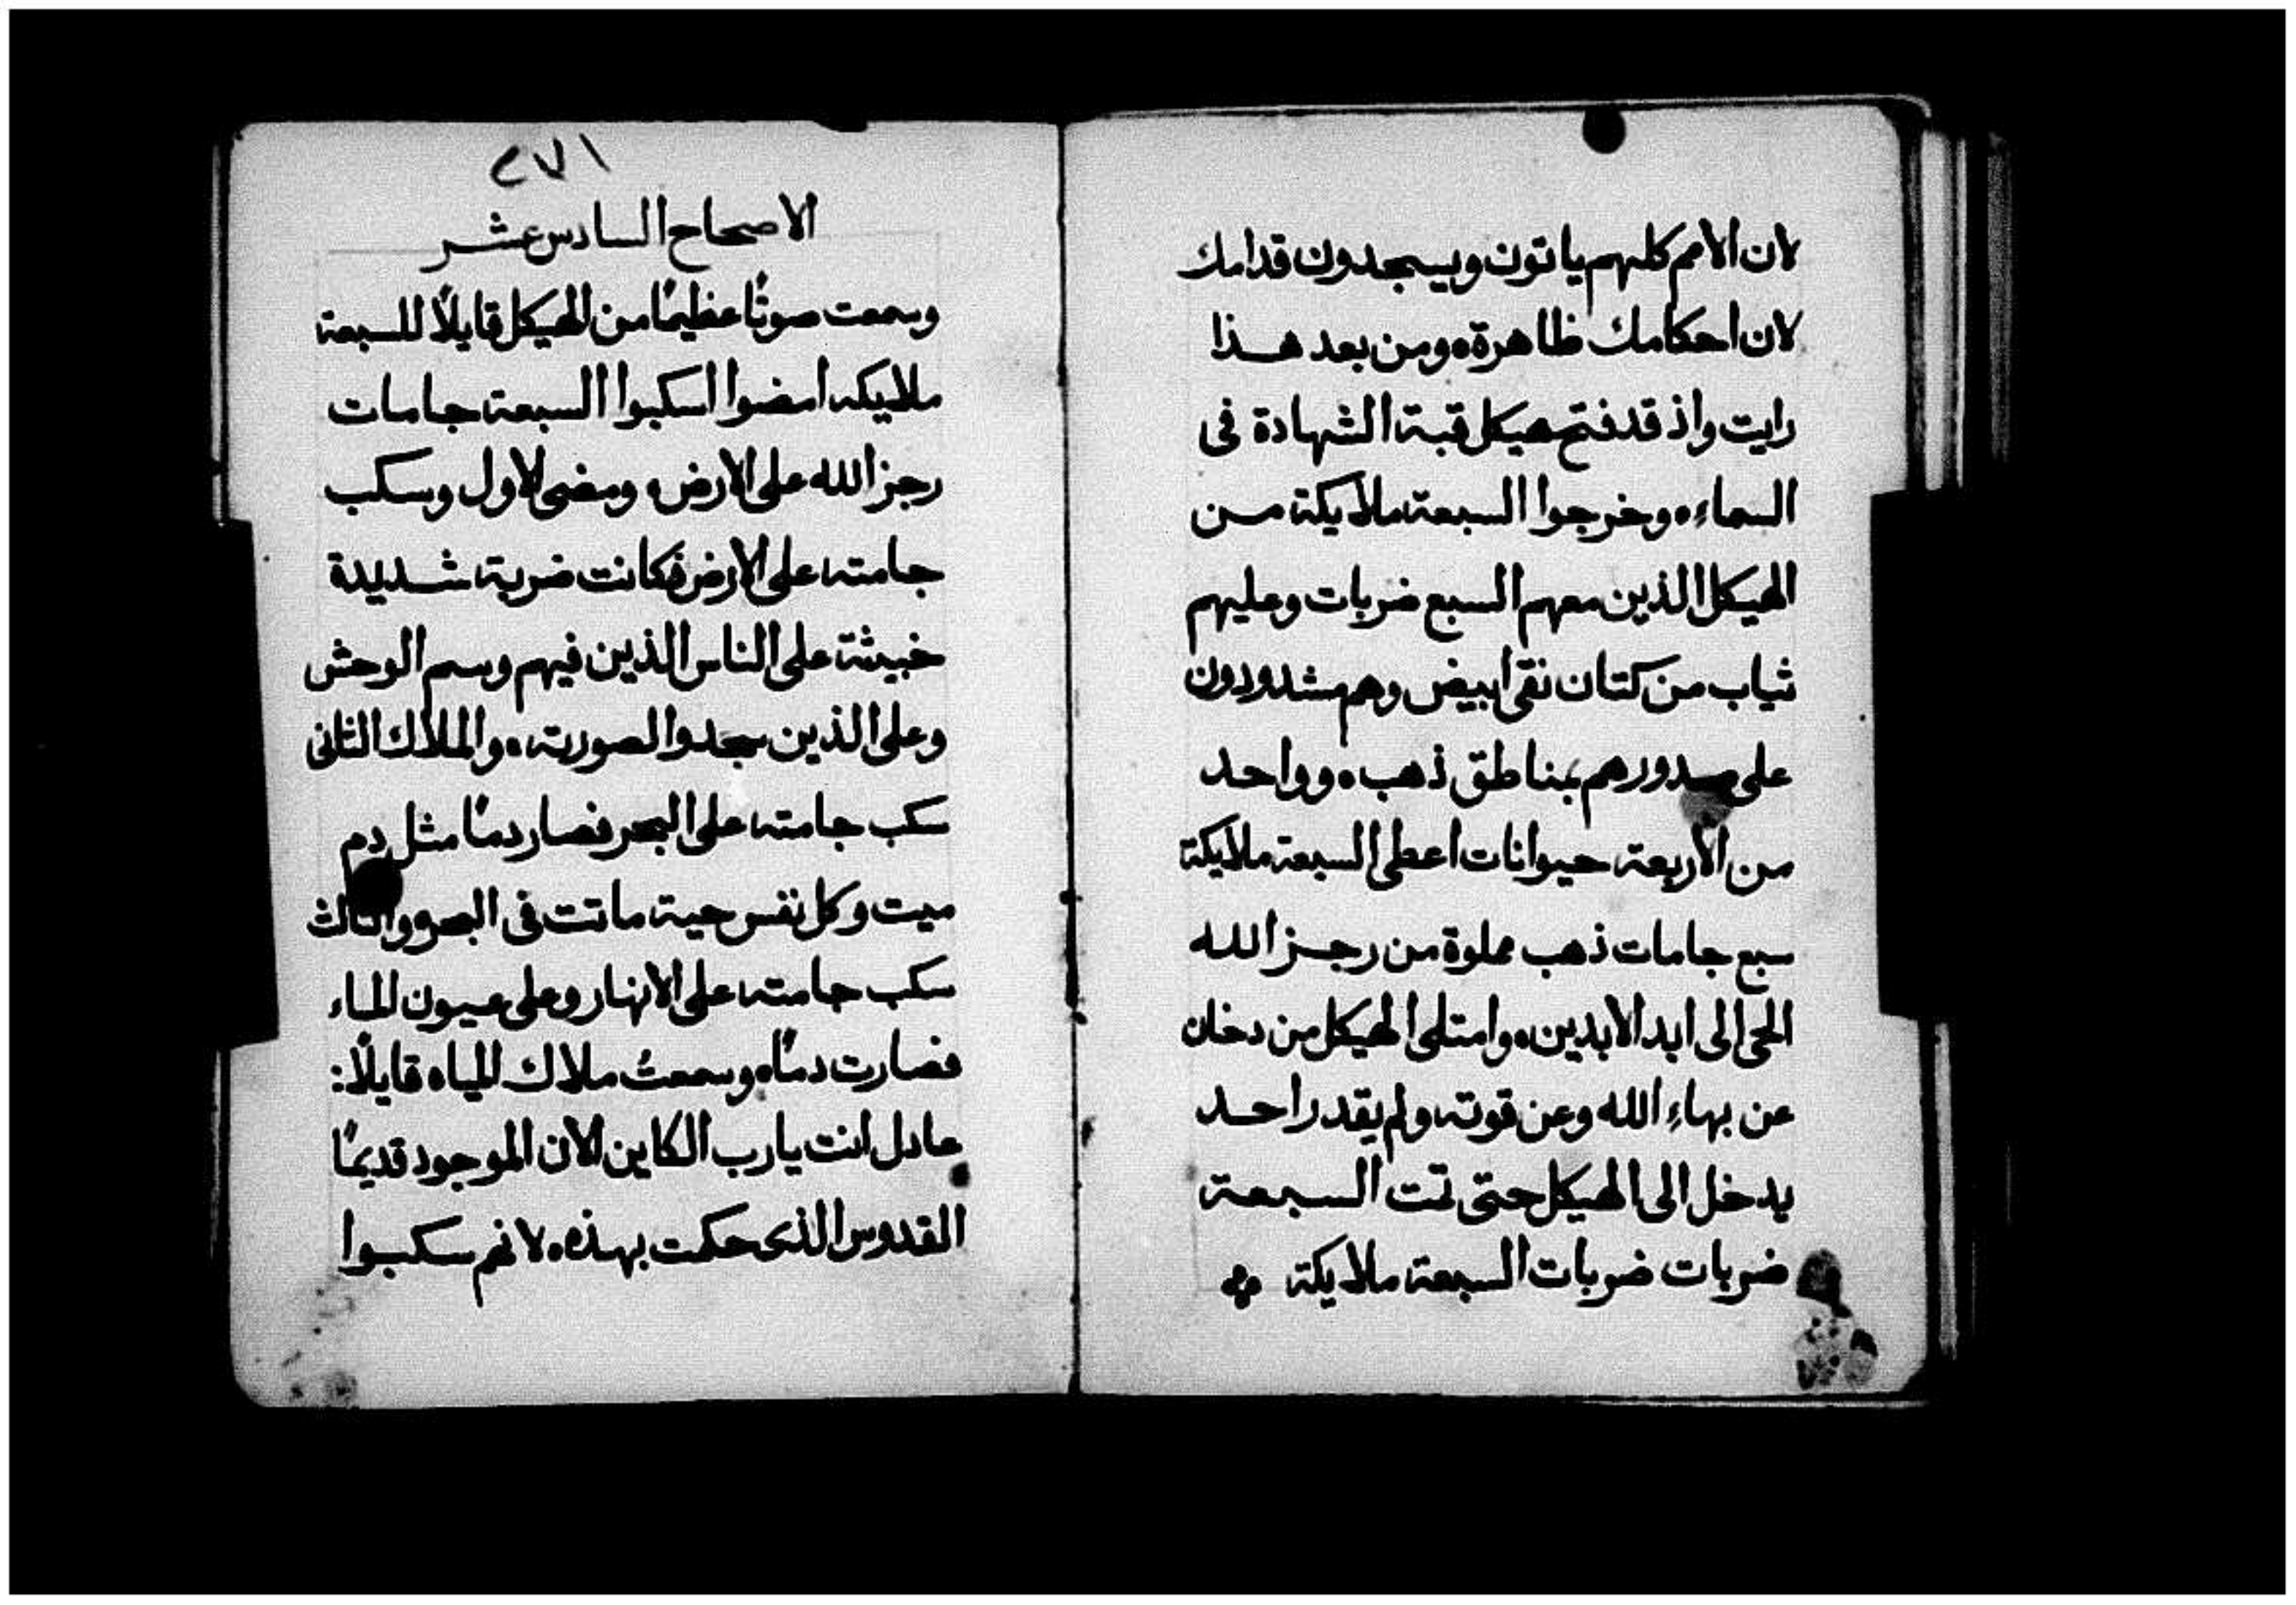 لان الامم كلهم ياتون ويسجدون قدامك
لان احكامك ظاهرة ومن بعد هذا
رايت واذ قد فتح هيكل قبة الشهادة فى
السماء وخرجوا السبعة ملايكة من
الهيكل الذين معهم السبع ضربات وعليهم
ثياب من كتان نقى ابيض وهم مشدودون
على صدورهم بمناطق ذهب وواحد
من الاربعة حيوانات اعطى السبعة ملايكة
سبع جامات ذهب مملوة من رجز الله
الحى الى ابد الابدين وامتلى الهيكل من دخان
عن بهاء الله وعن قوته ولم يقدر احد
يدخل الى الهيكل حتى تمت السبعة
ضربات ضربات السبعة ملايكة
٢٧١
الاصحاح السادس عشر
وسمعت صوتًا عظيمًا من الهيكل قايلًا للسبعة
ملايكه امضوا اسكبوا السبعة جامات
رجز الله على الارض ومضى الاول وسكب
جامته على الارض فكانت ضربة شديدة
خبيثة على الناس الذين فيهم وسم الوحش
وعلى الذين سجدوا لصورته والملاك الثانى
سكب جامته على البحر فصار دمًا مثل دم
ميت وكل نفس حية ماتت فى البحر والثالث
سكب جامته على الانهار وعلى عيون الماء
فصارت دمًا وسمعتُ ملاك المياه قايلًا:
عادل انت يارب الكاين الان الموجود قديمًا
القدوس الذى حكمت بهذه لانهم سكبوا